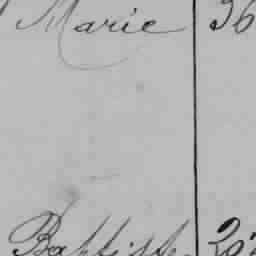 Marie 36
Baptiste